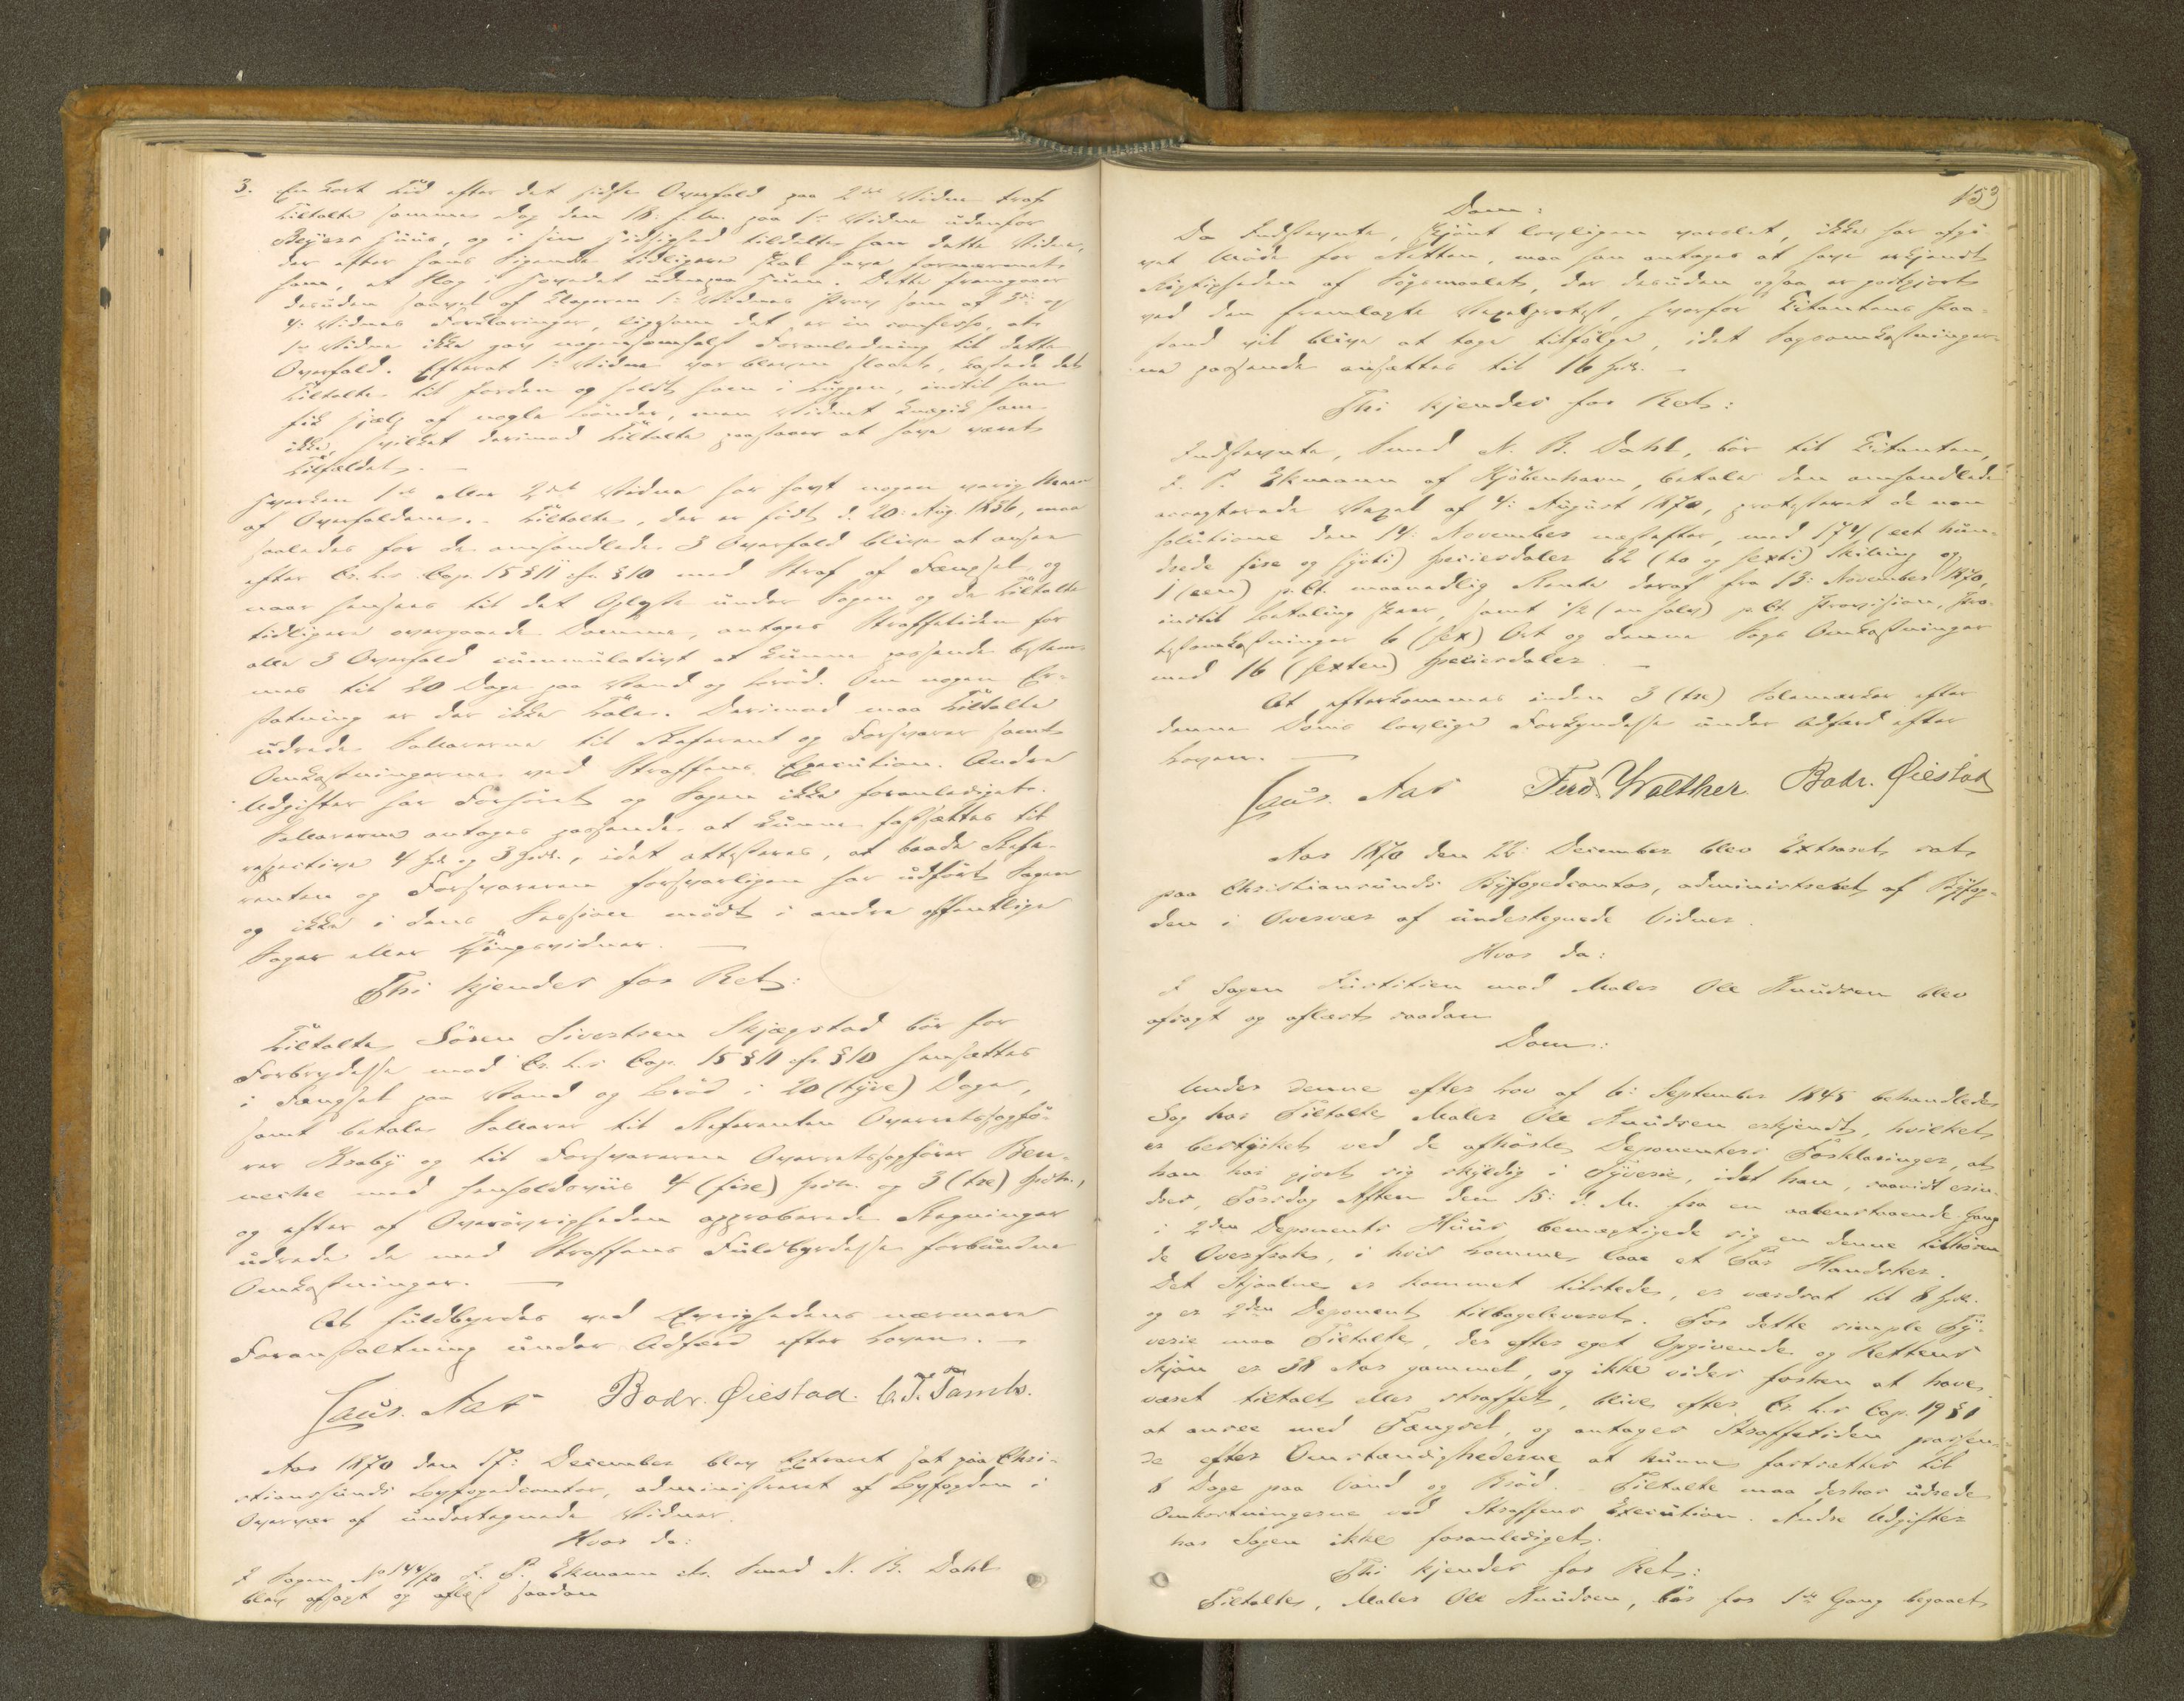 3. En kort Tid efter det sidste Overfald paa 2det Vidne traf
Tiltalte samme Dag den 18: f. M. paa 1ste Vidne udenfor
Beyers Huus, og i sin Hidsighed tildelte han dette Vidne,
der efter hans Sigende tidligere skal have fornærmet
ham, et Slag i Hovedet udenpaa Huen. Dette fremgaaer
desuden saavel af Klageren 1ste Vidnes Prov som af 3die og
4: Vidnes Forklaringer, ligesom det er in confesso, at
1ste Vidne ikke gav nogensomhelst Foranledning til dette
Overfald. Efterat 1ste Vidne var bleven slaaet, kastede det
Tiltalte til Jorden og holdt ham i Luggen, indtil han
fik Hjælp af nogle Bønder, men Vidnet bragte ham
ikke, hvilket derimod Tiltalte paastaaer at have været
Tilfældet. —
Hverken 1ste eller 2det Vidne har havt nogen varig Meen
af Overfaldene. Tiltalte, der er født d. 20: Aug. 1836, maa
saaledes for de omhandlede 3 Overfald blive at ansee
efter Cr. L. Cap. 15 § 11 cfr. § 10 med Straf af Fængsel, og
naar hensees til det Oplyste under Sagen og de Tiltalte
tidligere overgaaede Domme, antages Straffetiden for
alle 3 Overfald cummulativt at kunne passende bestem-
mes til 20 Dage paa Vand og Brød. Om nogen Er-
statning er der ikke Tale. Derimod maa Tiltalte
udrede Salarerne til Referent og Forsvarer samt
Omkostningerne ved Straffens Execution. Andre
Udgifter har Forhøret og Sagen ikke foranlediget.
Salarerne antages passende at kunne fastsættes til
respective 4 Spd. og 3 Spdlr., idet attesteres, at baade Refe-
renten og Forsvareren forsvarligen har udført Sagen
og ikke i dens Session mødt i andre offentlige
Sager eller Thingsvidner. —
Thi kjendes for Ret:
Tiltalte Sören Sivertsen Skjægstad bör for
Forbrydelse mod Cr. L. Cap. 15 § 11 cfr. § 10 hensættes
i Fængsel paa Vand og Brød i 20 (tyve) Dage,
samt betale Salarer til Referenten Overretssagfö-
rer Kraby og til Forsvareren Overretssagförer Ben-
neche med henholdsviis 4 (fire) Spdlr. og 3 (tre) Spdlr.,
og efter af Overövrigheden approberede Regninger
udrede de med Straffens Fuldbyrdelse forbundne
Omkostninger. —
At fuldbyrdes ved Øvrighedens nærmere
Foranstaltning under Adfærd efter Loven. —
Laur. Aas Bodr. Øiestad. C. T. Tamb.
Aar 1870 den 17: December blev Extraret sat paa Chri-
stianssunds Byfogedcontor, administreret af Byfogden i
Overvær af undertegnede Vidner.
Hvor da:
I Sagen No 144/70 I. P. Ekmann ctr. Smed N. B. Dahl
blev afsagt og aflæst saadan
153
Dom:
Da Indstevnte, skjönt lovligen varslet, ikke har afgi-
vet Møde for Retten, maa han antages at have erkjendt
Rigtigheden af Sögsmaalet, der desuden ogsaa er godtgjort
ved den fremlagte Vexelprotest, hvorfor Citantens Paa-
stand vil blive at tage tilfölge, idet Sagsomkostninger-
ne passende ansættes til 16 Spdlr. —
Thi kjendes for Ret:
Indstevnte, Smed N. B. Dahl, bör til Citanten,
I. P. Ekmann af Kjöbenhavn, betale den omhandlede
accepterede Vexel af 4: August 1870, protesteret de non
solutione den 14: November næstefter, med 174 (eet hun-
drede fire og syvti) Speciesdaler 62 (to og sexti) Skilling og
1 (een) pCt. maanedlig Rente deraf fra 13: November 1870,
indtil Betaling skeer, samt 1/2 (en halv) pCt. Provision, Pro-
testomkostninger 6 (sex) Ort og denne Sags Omkostninger
med 16 (sexten) Speciesdaler. —
At efterkommes inden 3 (tre) Solemærker efter
denne Doms lovlige Forkyndelse under Adfærd efter
Loven. —
Laur. Aas Ferd. Walther. Bodr. Øiestad
Aar 1870 den 22: December blev Extraret sat
paa Christiansunds Byfogedcontor, administreret af Byfog-
den i Overvær af undertegnede Vidner.
Hvor da:
I Sagen Justitien mod Maler Ole Knudsen blev
afsagt og aflæst saadan
Dom:
Under denne efter Lov af 6: September 1845 behandlede
Sag har Tiltalte Maler Ole Knudsen erkjendt, hvilket
er bestyrket ved de afhørte Deponenters Forklaringer, at
han har gjort sig skyldig i Tyverie, idet han, saavidt erin-
dres, Torsdag Aften den 15: d. M. fra en aabenstaaende Gang
i 2den Deponents Huus bemægtigede sig en denne tilhøren-
de Overfrak, i hvis Lomme laae et Par Handsker.
Det Stjaalne er kommet tilstede, er værdsat til 8 Spdlr.
og er 2den Deponent tilbageleveret. For dette simple Ty-
verie maa Tiltalte, der efter eget Opgivende og Rettens
Skjøn er 38 Aar gammel, og ikke vides forhen at have
været tiltalt eller straffet, blive efter Cr. L.s Cap. 19 § 1
at ansee med Fængsel, og antages Straffetiden passen-
de efter Omstændighederne at kunne fastsættes til
8 Dage paa Vand og Bröd. Tiltalte maa derhos udrede
Omkostningerne ved Straffens Execution. Andre Udgifter
har Sagen ikke foranlediget.
Thi kjendes for Ret:
Tiltalte, Maler Ole Knudsen, bör for 1ste Gang begaaet